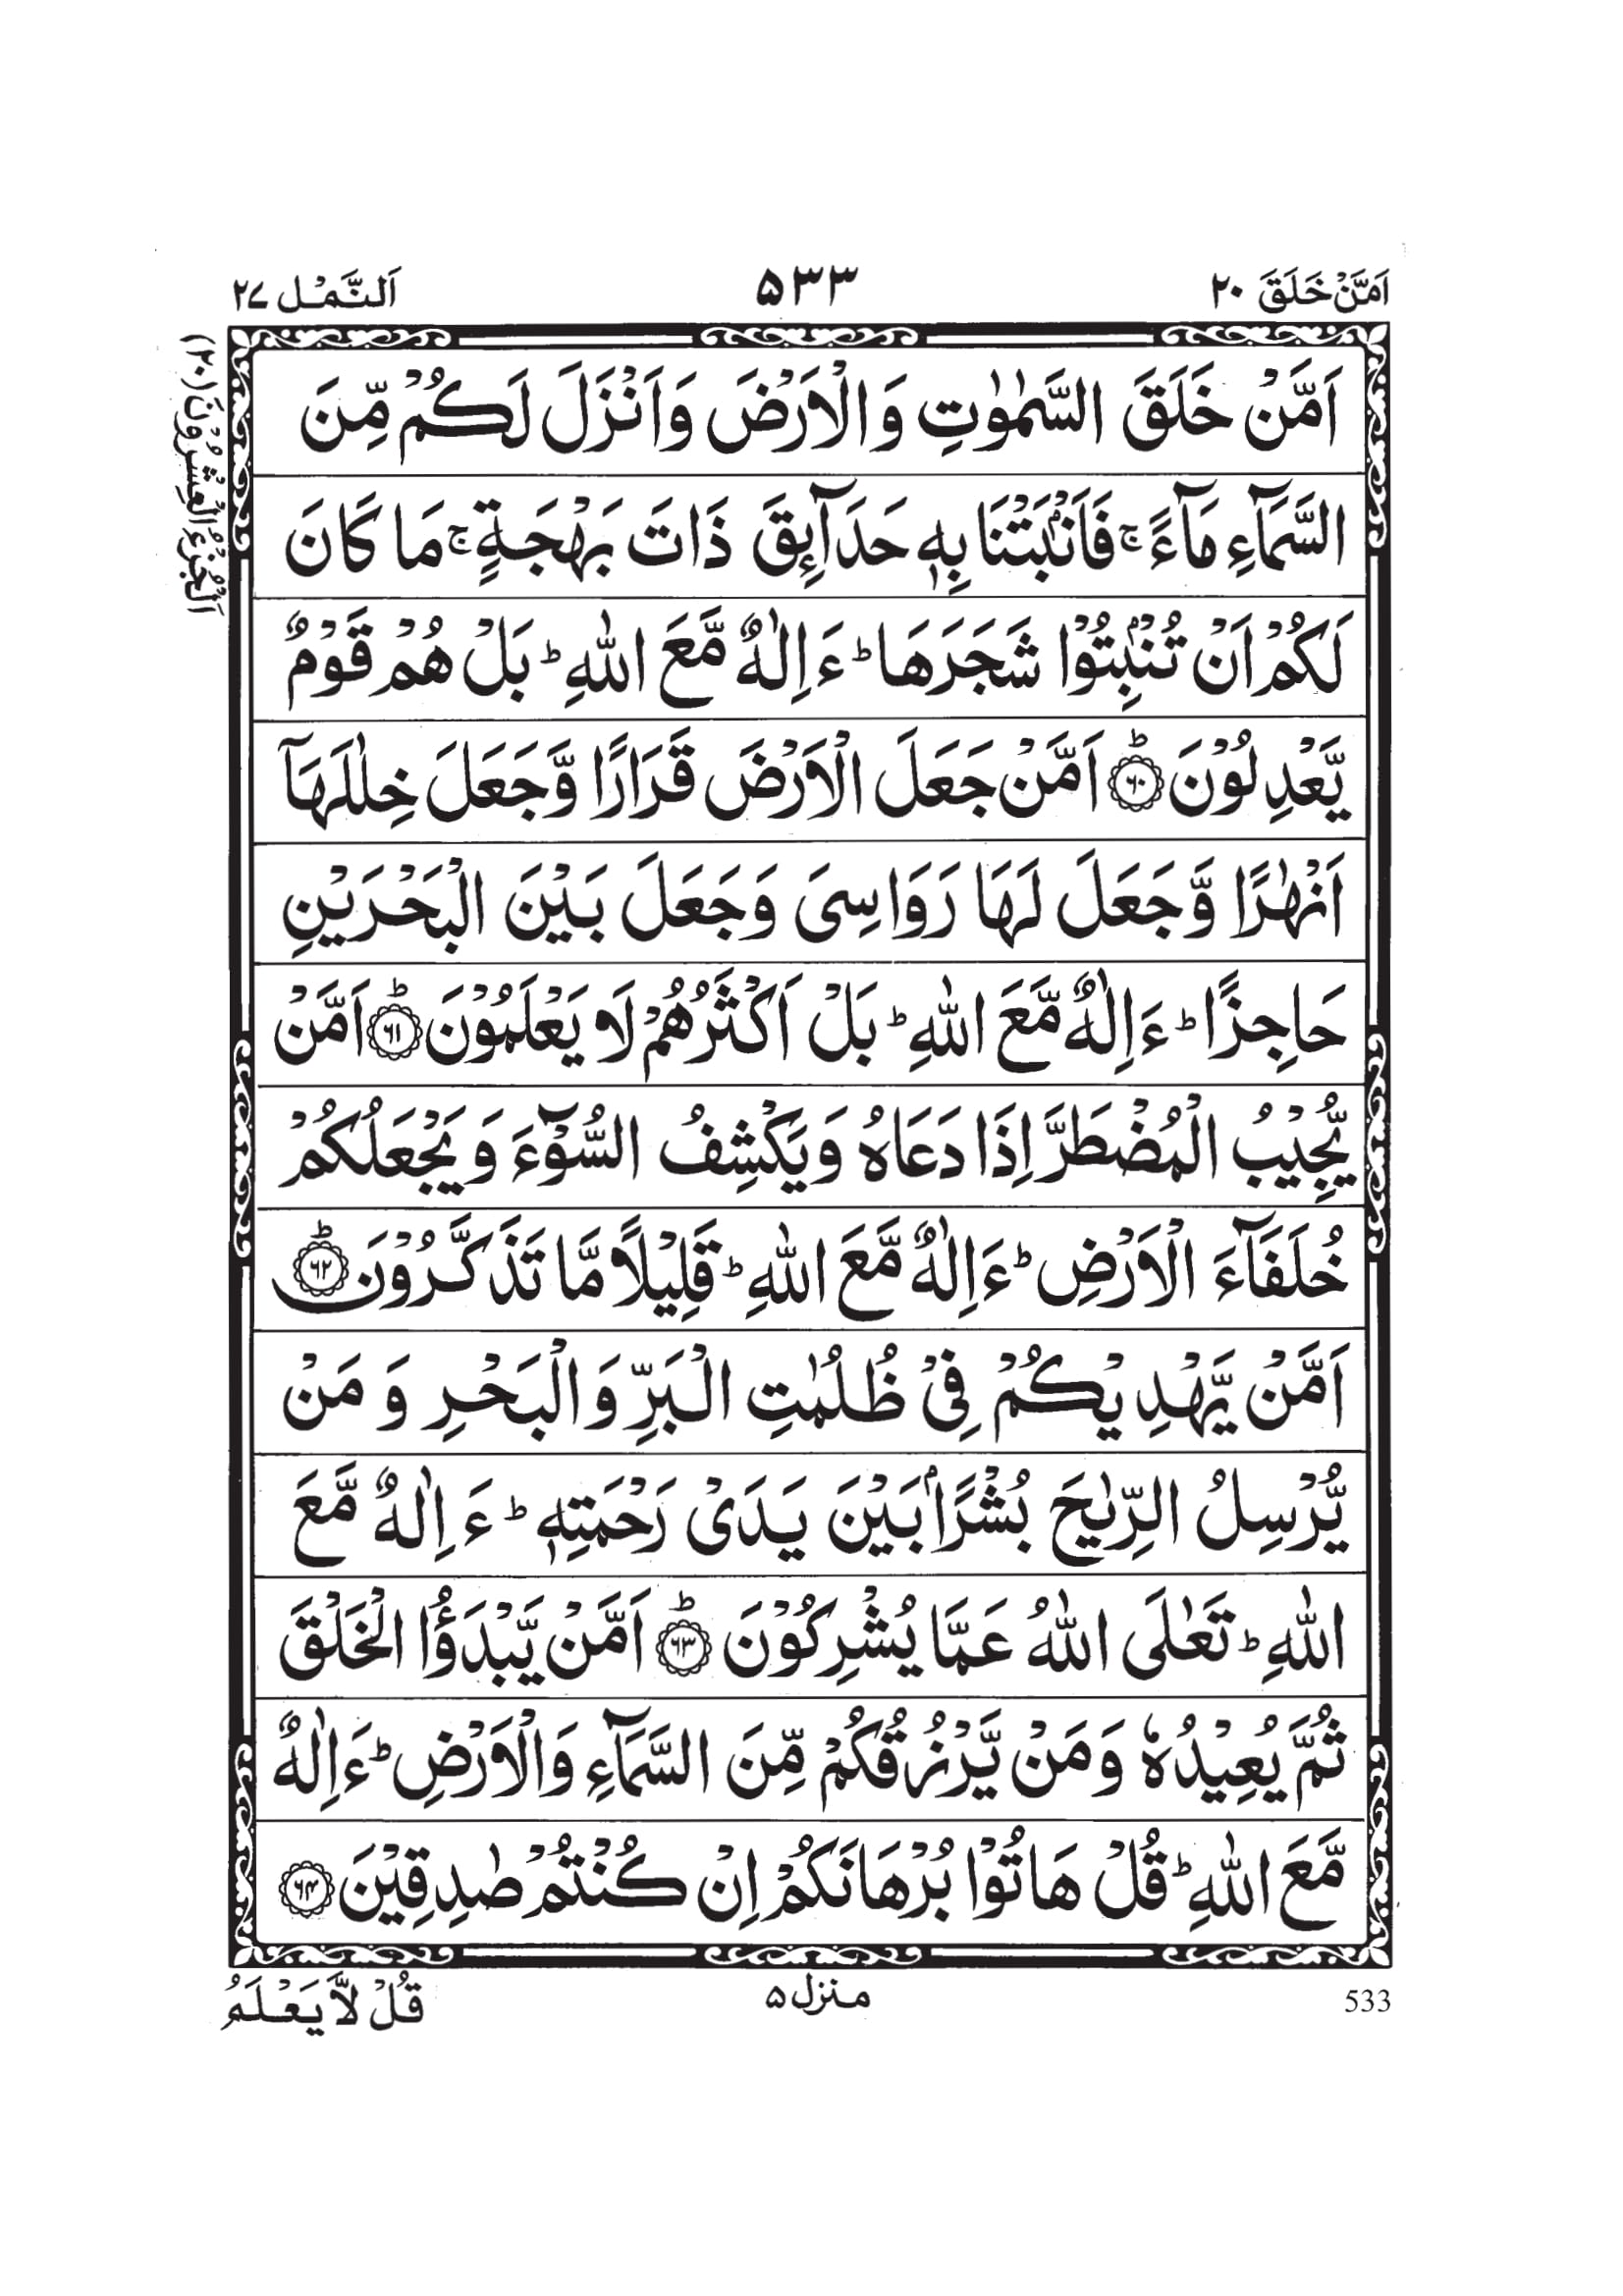 اَمَّنْ خَلَقَ ٢٠
٥٣٣
اَلنَّمْل ٢٧
اَلْجُزْءُ الْعِشْرُوْنَ (٢٠)
اَمَّنْ خَلَقَ السَّمٰوٰتِ وَالْاَرْضَ وَاَنْزَلَ لَكُمْ مِّنَ
السَّمَآءِ مَآءً ۚ فَاَنْۢبَتْنَا بِهٖ حَدَآئِقَ ذَاتَ بَهْجَةٍ ۚ مَا كَانَ
لَكُمْ اَنْ تُنْۢبِتُوْا شَجَرَهَا ؕ ءَاِلٰهٌ مَّعَ اللّٰهِ ؕ بَلْ هُمْ قَوْمٌ
يَّعْدِلُوْنَ ؕ ﴿٦٠﴾ اَمَّنْ جَعَلَ الْاَرْضَ قَرَارًا وَّجَعَلَ خِلٰلَهَاۤ
اَنْهٰرًا وَّجَعَلَ لَهَا رَوَاسِىَ وَجَعَلَ بَيْنَ الْبَحْرَيْنِ
حَاجِزًا ؕ ءَاِلٰهٌ مَّعَ اللّٰهِ ؕ بَلْ اَكْثَرُهُمْ لَا يَعْلَمُوْنَ ؕ ﴿٦١﴾ اَمَّنْ
يُّجِيْبُ الْمُضْطَرَّ اِذَا دَعَاهُ وَيَكْشِفُ السُّوْٓءَ وَيَجْعَلُكُمْ
خُلَفَآءَ الْاَرْضِ ؕ ءَاِلٰهٌ مَّعَ اللّٰهِ ؕ قَلِيْلًا مَّا تَذَكَّرُوْنَ ؕ ﴿٦٢﴾
اَمَّنْ يَّهْدِيْكُمْ فِىْ ظُلُمٰتِ الْبَرِّ وَالْبَحْرِ وَمَنْ
يُّرْسِلُ الرِّيٰحَ بُشْرًاۢ بَيْنَ يَدَىْ رَحْمَتِهٖ ؕ ءَاِلٰهٌ مَّعَ
اللّٰهِ ؕ تَعٰلَى اللّٰهُ عَمَّا يُشْرِكُوْنَ ؕ ﴿٦٣﴾ اَمَّنْ يَّبْدَؤُا الْخَلْقَ
ثُمَّ يُعِيْدُهٗ وَمَنْ يَّرْزُقُكُمْ مِّنَ السَّمَآءِ وَالْاَرْضِ ؕ ءَاِلٰهٌ
مَّعَ اللّٰهِ ؕ قُلْ هَاتُوْا بُرْهَانَكُمْ اِنْ كُنْتُمْ صٰدِقِيْنَ ﴿٦٤﴾
533
منزل ٥
قُلْ لَّا يَعْلَمُ